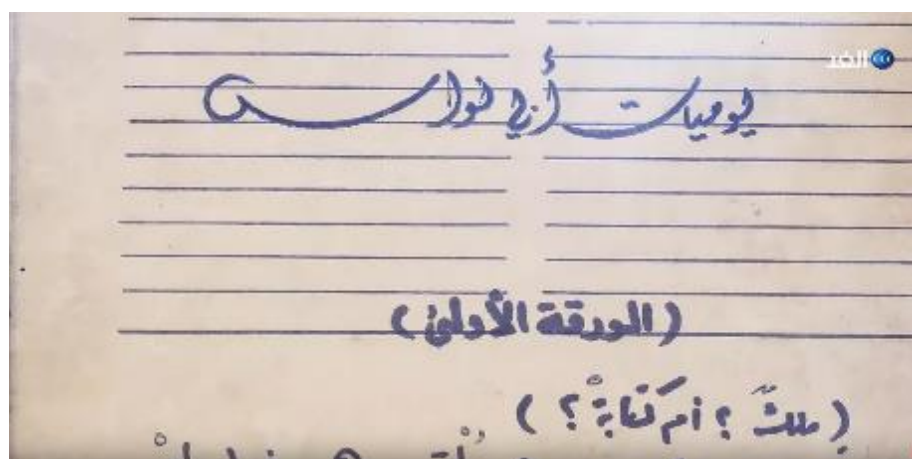 الغد
يوميات أبي نواس
(الورقة الأولى)
(ملكٌ؟ أم كتابةٌ؟)